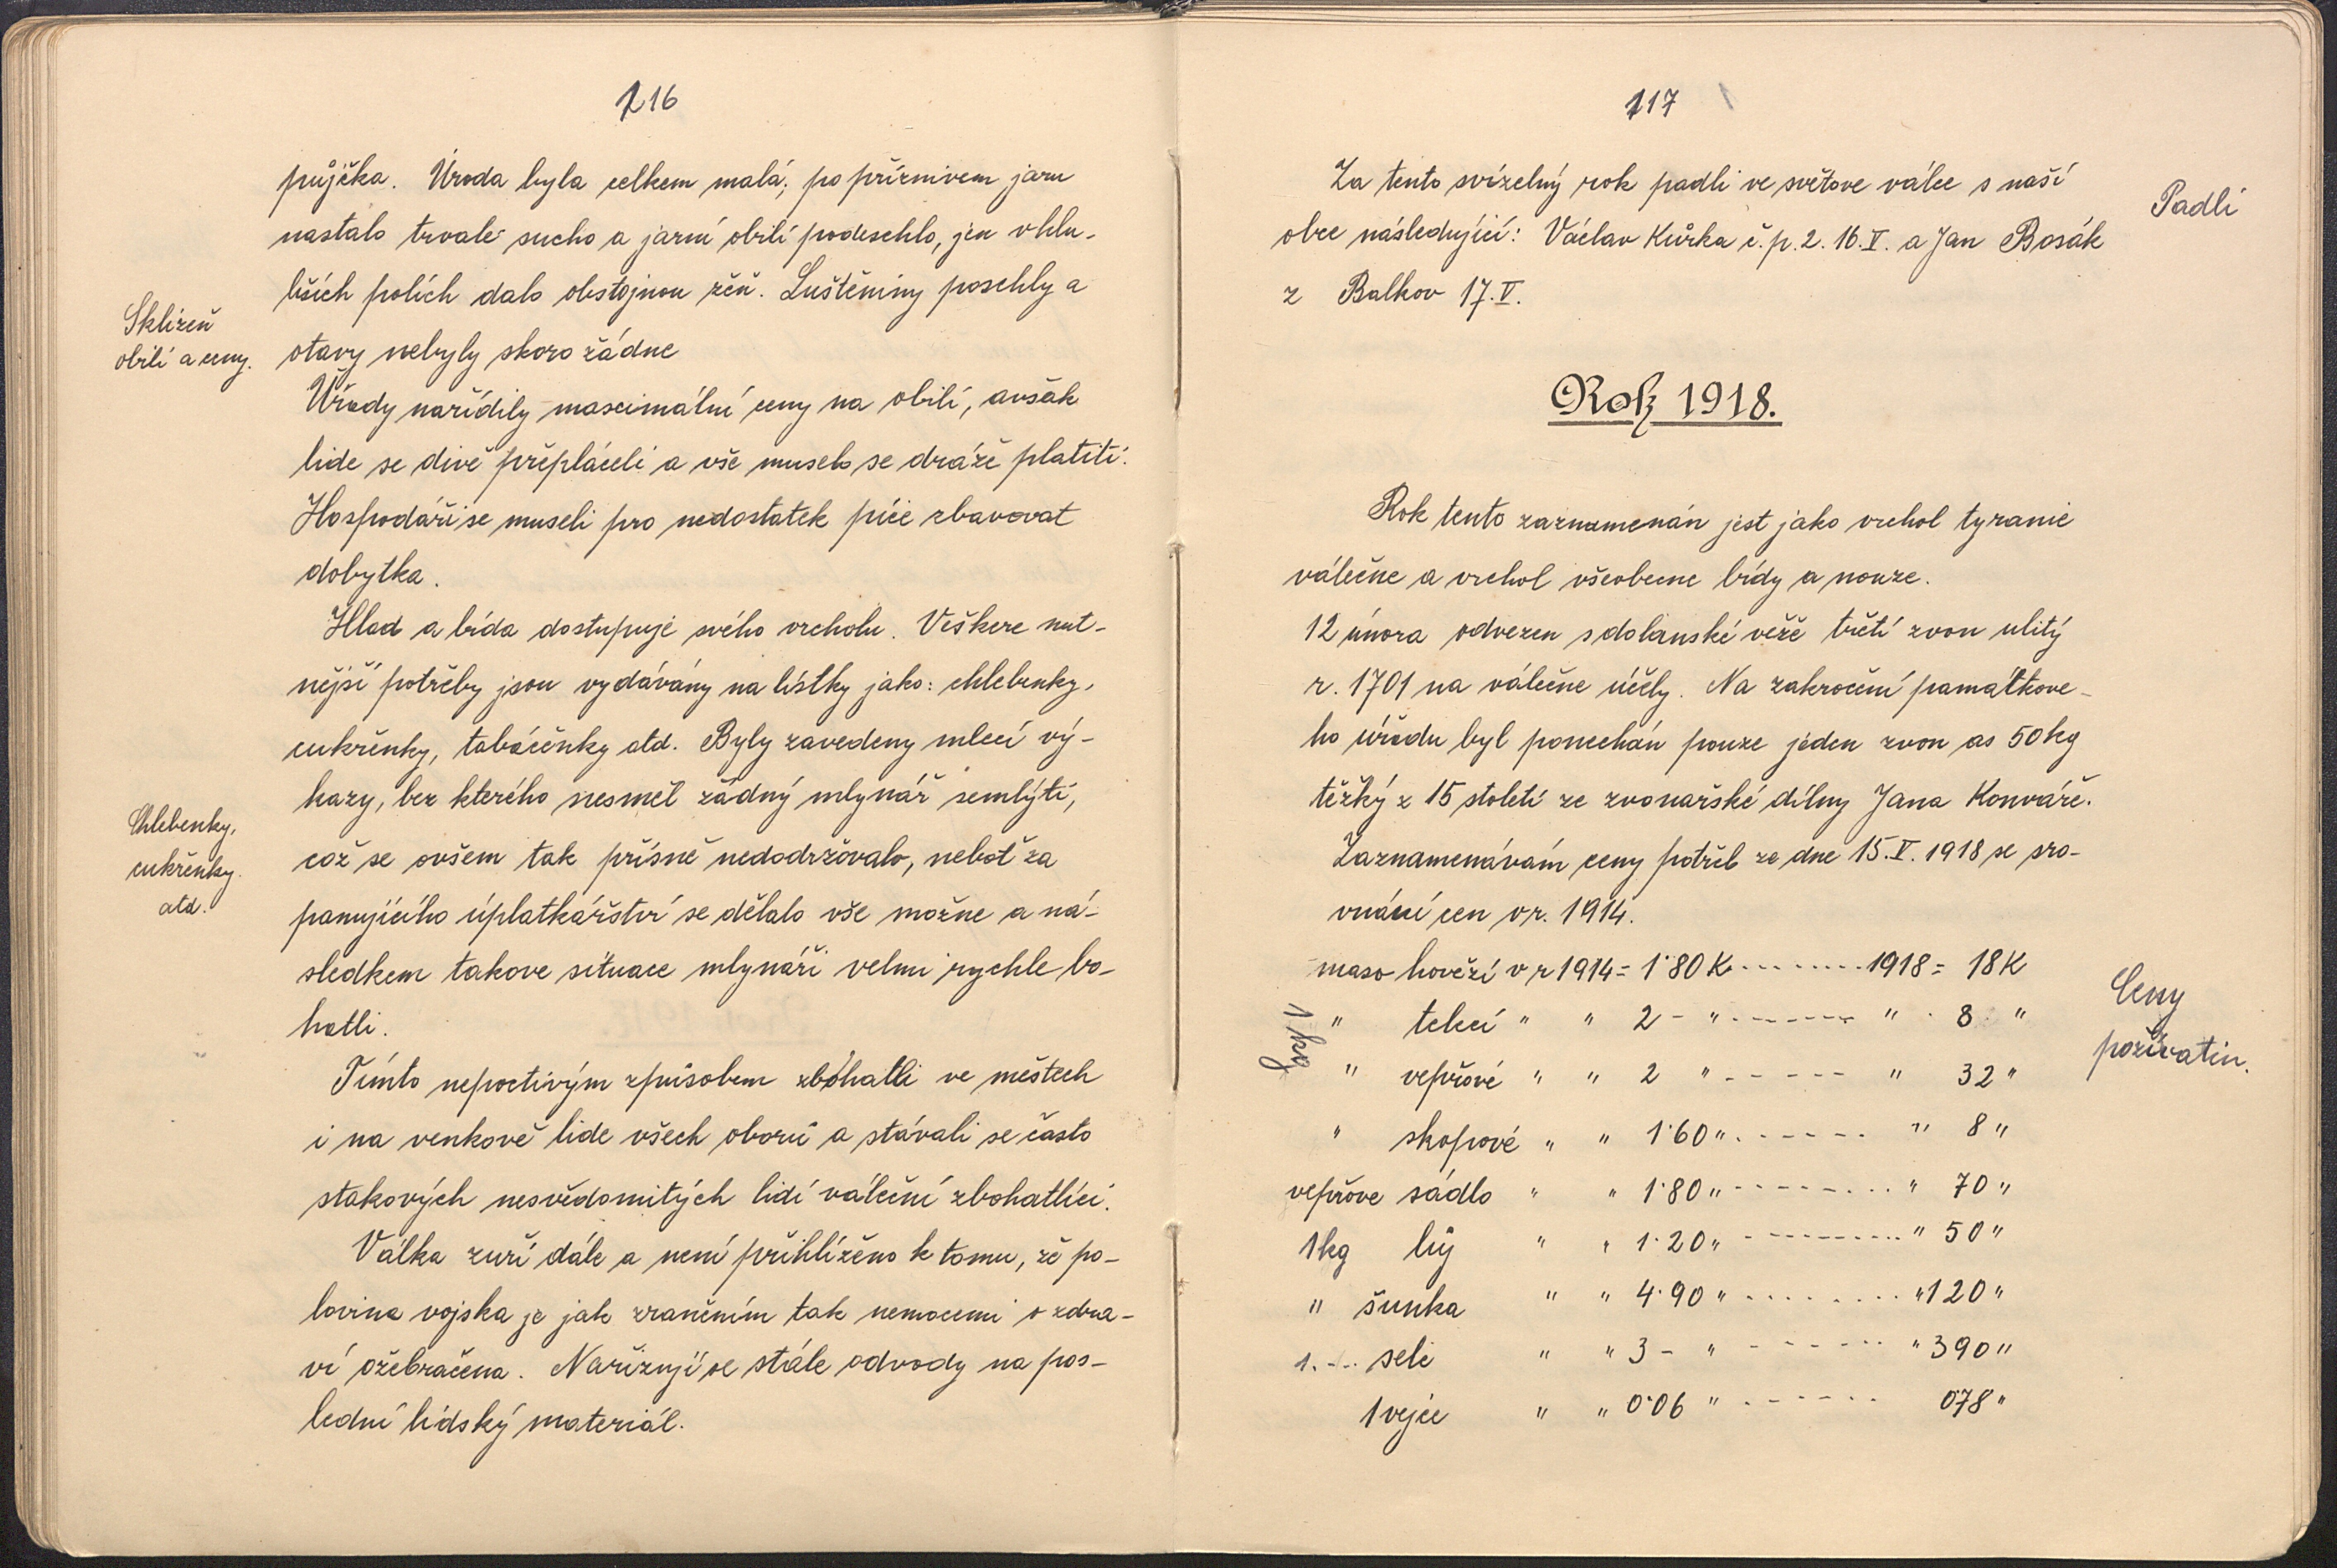 116
půjčka. Úroda byla celkem malá; po příznivem jaru
nastalo trvalé sucho a jarní obilí podeschlo, jen v hlu-
bších polích dalo obstojnou žeň. Luštěniny poschly a
Sklizeň
obilí a ceny.
otavy nebyly skoro žádne
Úřady nařídily maximální ceny na obilí, avšak
lide se divě přepláceli a vše muselo se dráže platiti.
Hospodáři se museli pro nedostatek píce zbavovat
dobytka.
Hlad a bída dostupuje svého vrcholu. Veškere nut-
nější potřeby jsou vydávány na lístky jako: chlebenky,
cukřenky, tabáčenky atd. Byly zavedeny mlecí vý-
kazy, bez kterého nesměl žádný mlynář semlýti,
Chlebenky,
cukřenky.
atd.
což se ovšem tak přísně nedodržovalo, neboť za
panujícího úplatkářství se dělalo vše možne a ná-
sledkem takove situace mlynáři velmi rychle bo-
hatli.
Tímto nepoctivým způsobem zbohatli ve městech
i na venkově lide všech oborů a stávali se často
stakových nesvědomitých lidí váleční zbohatlíci.
Válka zuří dále a není přihlíženo k tomu, že po-
lovina vojska je jak zraněním tak nemocemi o zdra-
ví ožebračena. Nařizují se stále odvody na pos-
lední lidský materiál.
117
Za tento svízelný rok padli ve světove válce s naší
Padlí
obce následující: Václav Kůrka č.p. 2. 16. V. a Jan Bosák
z Balkov 17. V.
Rok 1918.
Rok tento zaznamenán jest jako vrchol tyranie
válečne a vrchol všeobecne bídy a nouze.
12 února odvezen s dolanské věže třetí zvon ulitý
r. 1701 na válečne účely. Na zakročení památkove-
ho úřadu byl ponechán pouze jeden zvon as 50 kg
těžký z 15 století ze zvonařské dílny Jana Konváře.
Zaznamenávám ceny potřeb ze dne 15. V. 1918 se sro-
vnání cen v r. 1914.
maso hovězí v r 1914 = 1·80 K ......... 1918 = 18 K
Ceny
požívatin.
1 kg
" telecí " " 2 - " ------- " 8 "
" vepřové " " 2 " ----- " 32 "
" skopové " " 1·60 " ------ " 8 "
vepřove sádlo " " 1·80 " -------- " 70 "
1 kg lůj " " 1·20 " --------- " 50 "
" šunka " " 4·90 " ........ " 120 "
1 .... sele " " 3 - " ------- " 390 "
1 vejce " " 0·06 " ------ 0·78 "